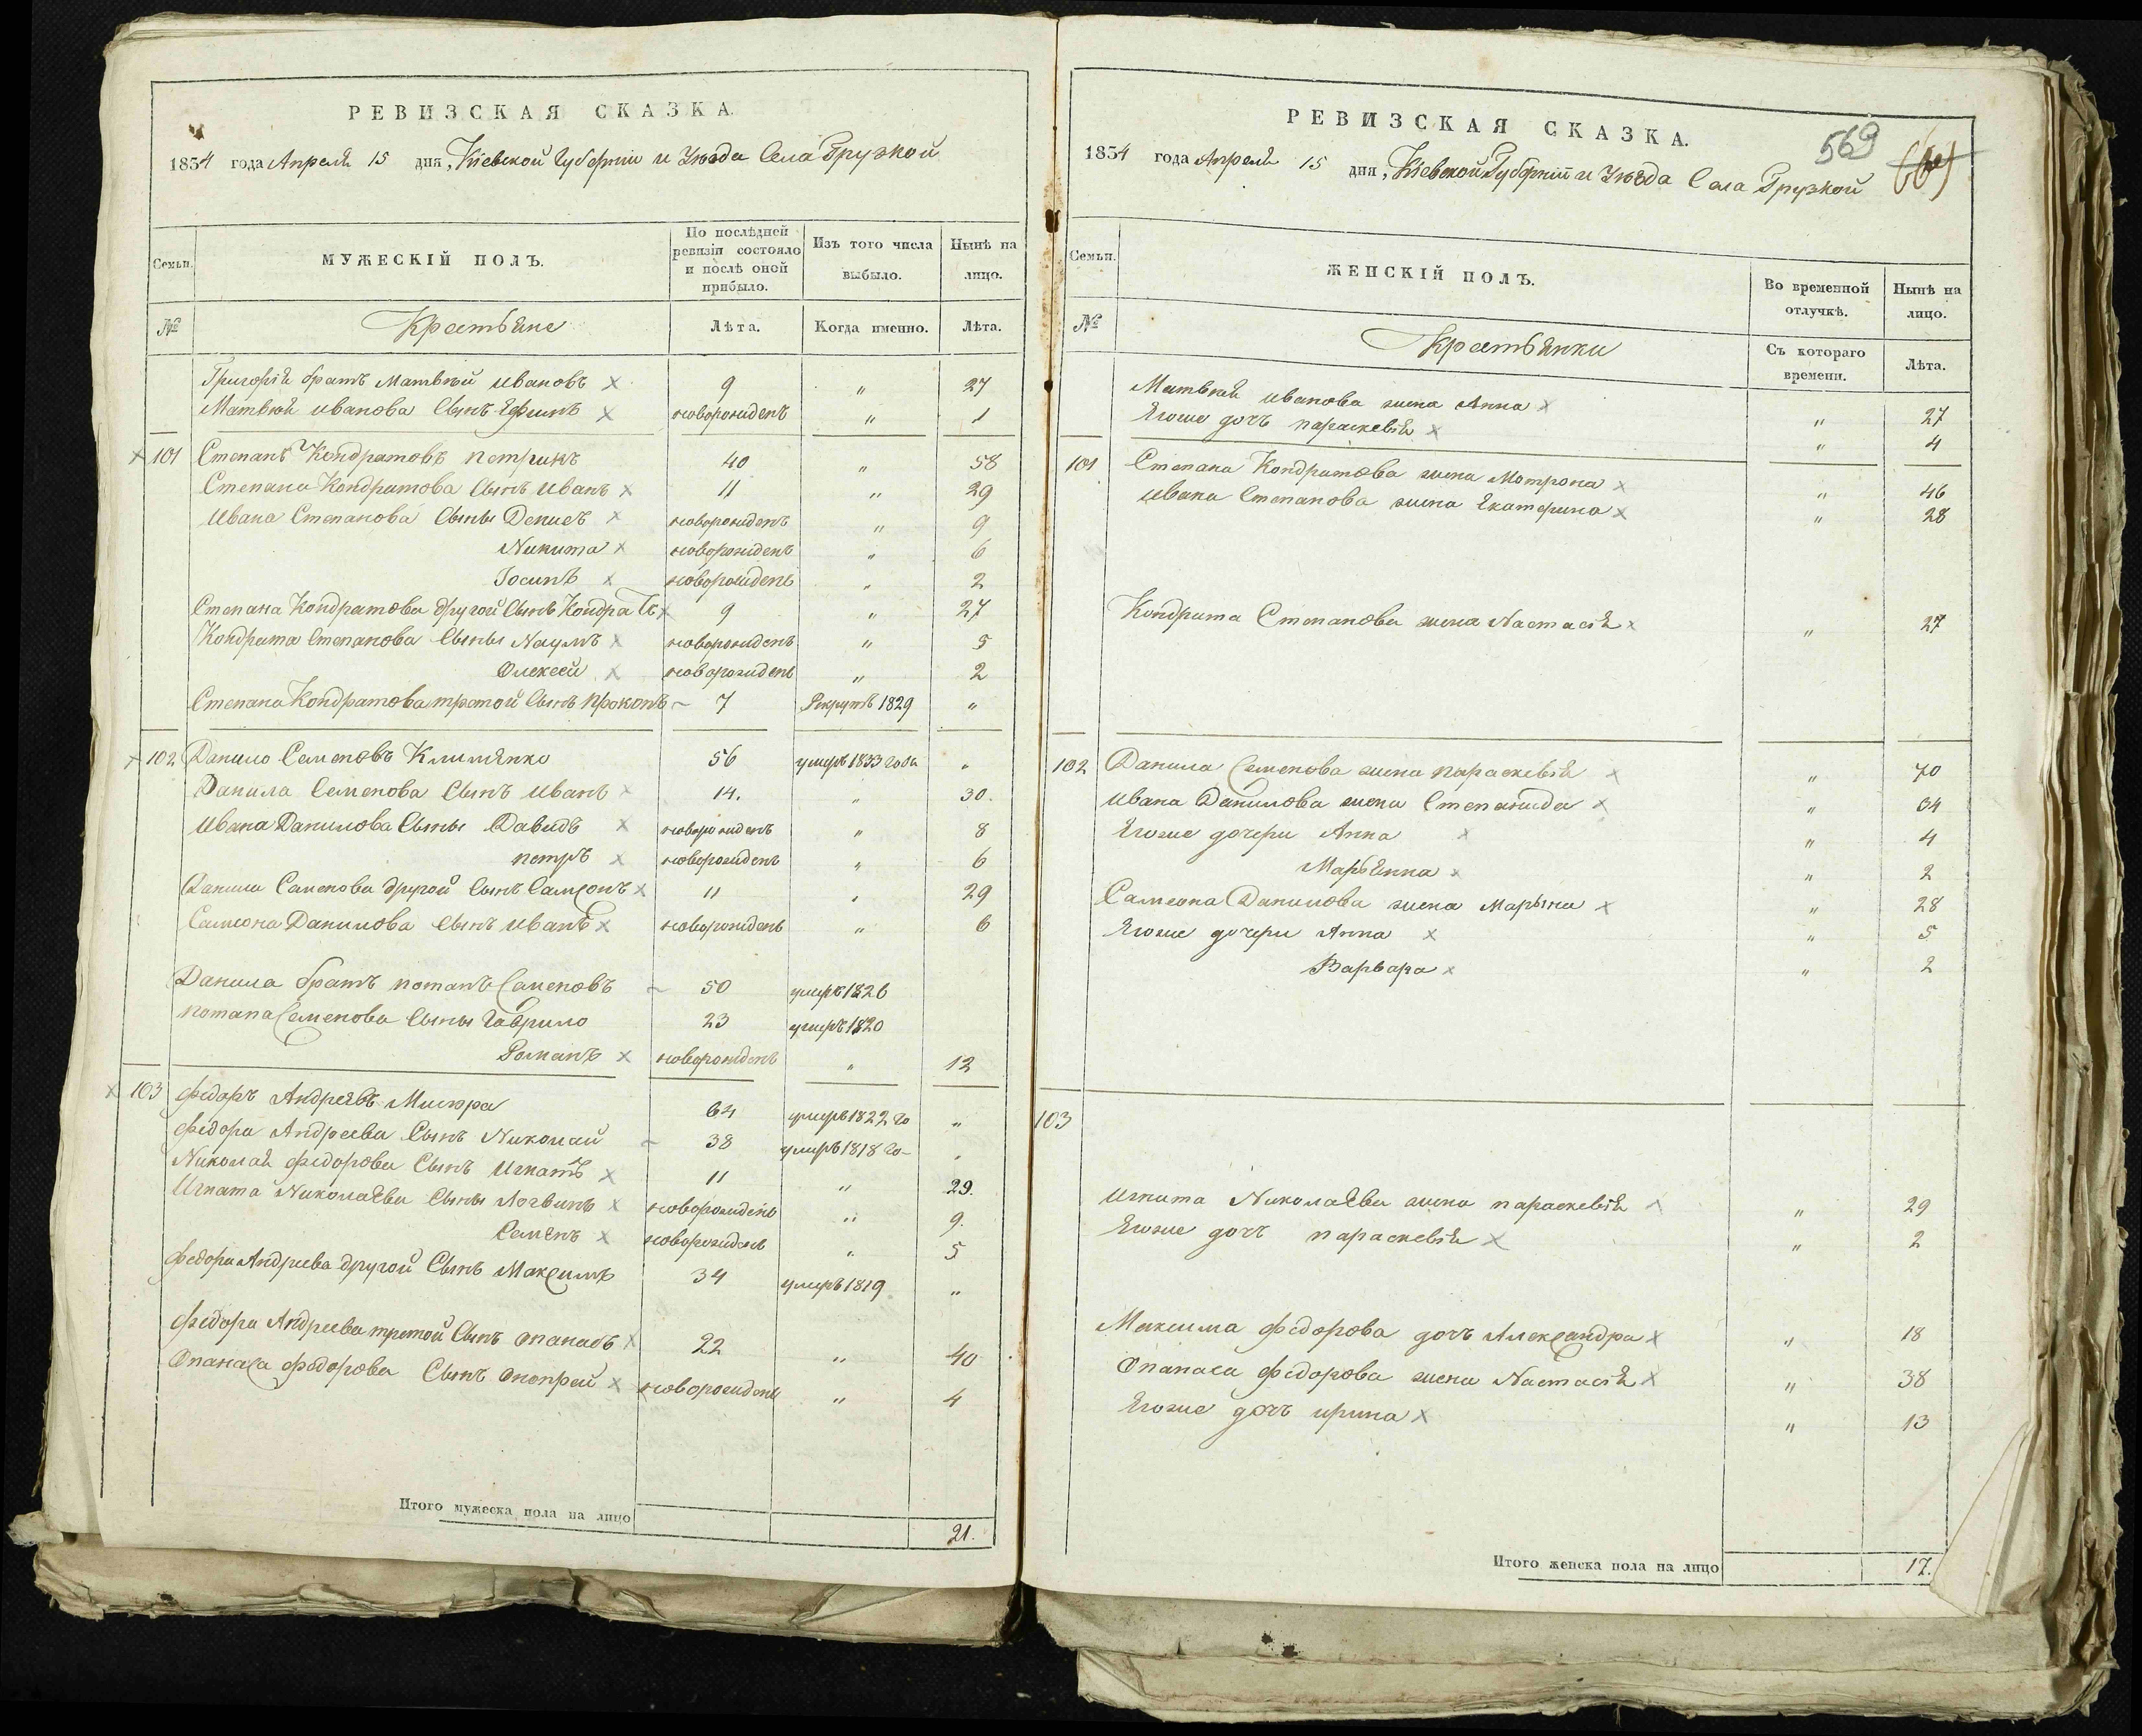 РЕВИЗСКАЯ СКАЗКА.
1834 года Апреля 15 дня, Кіевской Губерніи и Уѣзда Села Грузкой
Семьи. МУЖЕСКІЙ ПОЛЪ. По послѣдней ревизіи состояло и послѣ оной прибыло. Изъ того числа выбыло. Нынѣ на лицо.
№ Крестьяне Лѣта. Когда именно. Лѣта.
Григорія братъ Матвѣй Ивановъ 9 " 27
Матвѣя Иванова Сынъ Ефимъ новорожденъ " 1
101 Степанъ Кондратовъ Петрикъ 40 " 58
Степана Кондратова Сынъ Иванъ 11 " 29
Ивана Степанова Сыны Денисъ новорожденъ " 9
Никита новорожденъ " 6
Іосипъ новорожденъ " 2
Степана Кондратова другой Сынъ Кондратъ 9 " 27
Кондрата Степанова Сыны Наумъ новорожденъ " 5
Олексей новорожденъ " 2
Степана Кондратова третой Сынъ Прокопъ 7 Рекрутъ 1829 "
102 Данило Семеновъ Климянко 56 умеръ 1833 года "
Данила Семенова Сынъ Иванъ 14. " 30.
Ивана Данилова Сыны Давидъ новорожденъ " 8
Петръ новорожденъ " 6
Данила Семенова другой Сынъ Самсонъ 11 " 29
Самсона Данилова Сынъ Иванъ новорожденъ " 6
Данила братъ Потапъ Семеновъ 50 умеръ 1826
Потапа Семенова Сыны Гаврило 23 умеръ 1820
Романъ новорожденъ " 12
103 Федоръ Андреевъ 64 умеръ 1822 го "
Федора Андреева Сынъ Николай 38 умеръ 1818 го "
Николая Федорова Сынъ Игнатъ 11 " 29.
Игната Николаева Сыны Логвинъ новорожденъ " 9.
Семенъ новорожденъ " 5
Федора Андреева другой Сынъ Максимъ 34 умеръ 1819 "
Федора Андреева третой Сынъ Опанасъ 22 " 40
Опанаса Федорова Сынъ Онопрей новорожденъ " 4
Итого мужеска пола на лицо 21.
569
РЕВИЗСКАЯ СКАЗКА.
1834 года Апреля 15 дня, Кіевской Губерніи и Уѣзда Села Грузкой
Семьи. ЖЕНСКІЙ ПОЛЪ. Во временной отлучкѣ. Нынѣ на лицо.
№ Крестьянки Съ котораго времени. Лѣта.
Матвѣя Иванова жена Анна " 27
Егоже дочь Параскевія " 4
101 Степана Кондратова жена Мотрона " 46
Ивана Степанова жена Екатерина " 28
Кондрата Степанова жена Настасія " 27
102 Данила Семенова жена Параскевія " 70
Ивана Данилова жена Степанида " 34
Егоже дочери Анна " 4
Марьянна " 2
Самсона Данилова жена Марына " 28
Егоже дочери Анна " 5
Варвара " 2
103
Игната Николаева жена Параскевія " 29
Егоже дочь Параскевія " 2
Максима Федорова дочь Александра " 18
Опанаса Федорова жена Настасія " 38
Егоже дочь Ирина " 13
Итого женска пола на лицо 17.